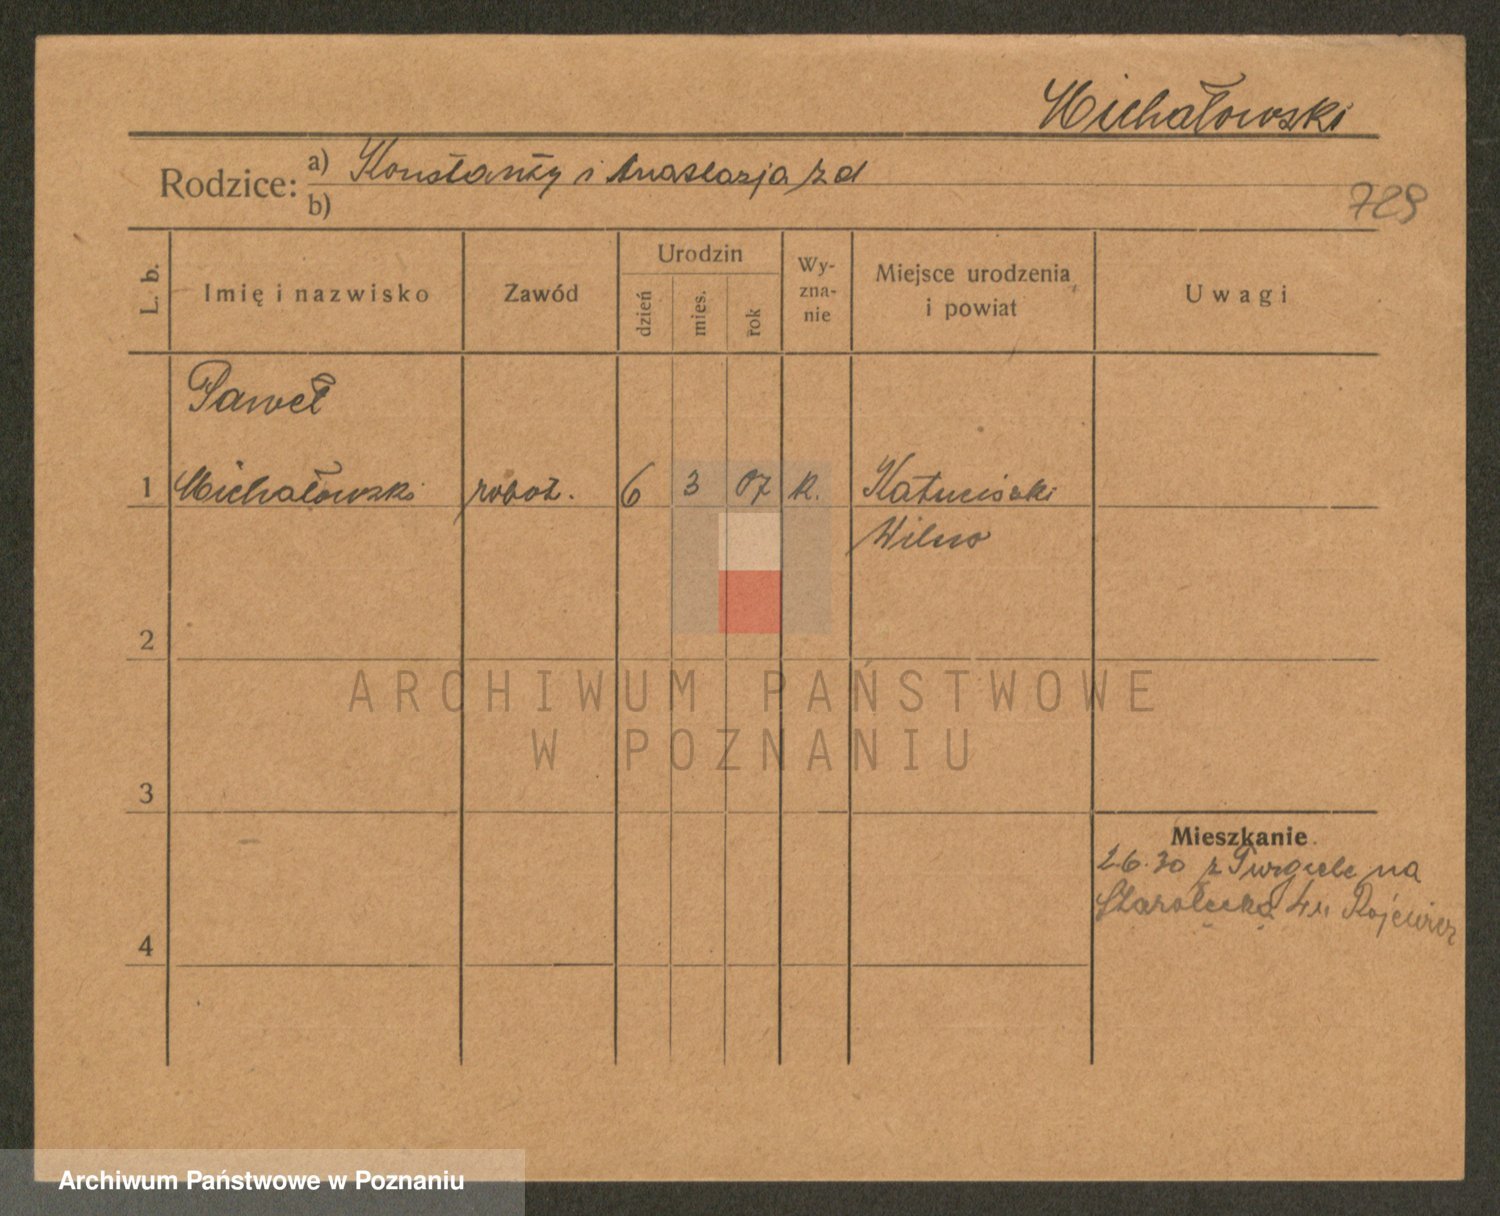 Michałowski
Rodzice: a) Konstanty i Anastazja z d
b)
729
L. b.
Imię i nazwisko
Zawód
Urodzin
dzień
mies.
rok
Wy-
zna-
nie
Miejsce urodzenia
i powiat
Uwagi
Paweł
1 Michałowski robot. 6 3 07 k.
Wilno
2
ARCHIWUM PAŃSTWOWE
W POZNANIU
3
Mieszkanie
26.30 z Turgiele na
Starołęcką
4
Archiwum Państwowe w Poznaniu